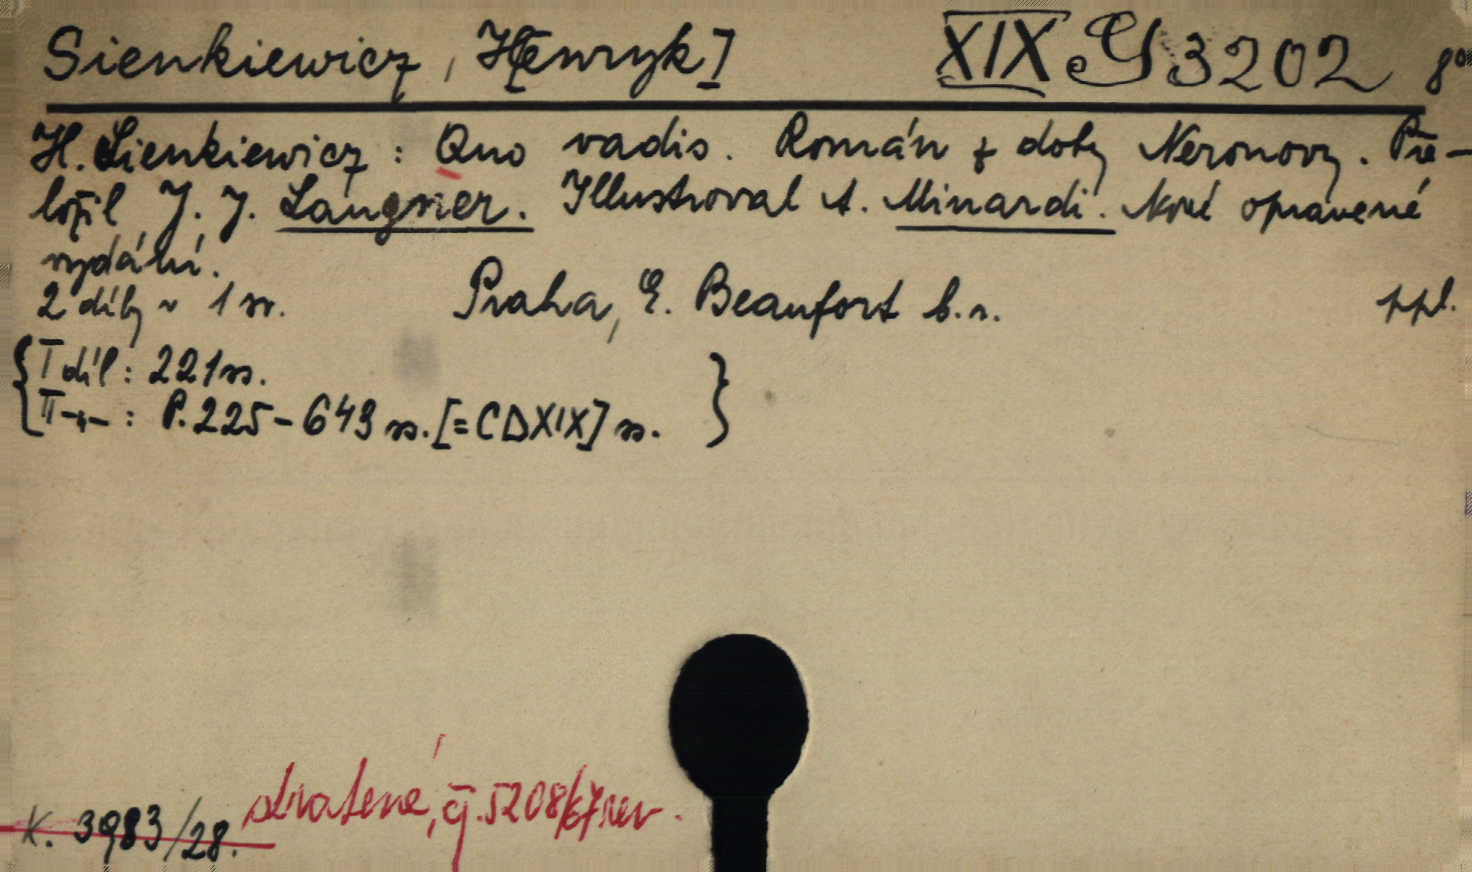 Sienkiewicz, H[enryk] XIX G 3202 8°
H. Sienkiewicz: Quo vadis. Román z doby Neronovy. Pře-
ložil J. J. Langner. Illustroval A. Minardi. Nové opravené
vydání.
2 díly v 1 sv. Praha, E. Beaufort b.r. ppl.
I díl: 221 ss.
II -"- : P. 225-643 ss. [=CDXIX] ss.
stratené, čj. 5208/67 rev.
K. 3983/28.